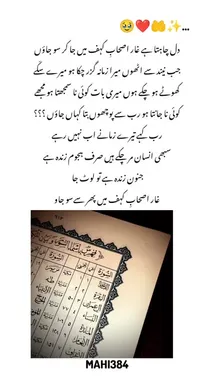 ...✨🤲❤️🥹
دل چاہتا ہے غار اصحاب کہف میں جا کر سو جاؤں
جب نیند سے اٹھوں میرا زمانہ گزر چکا ہو میرے سکے
کھوٹے ہو چکے ہوں میری بات کوئی نا سمجھتا ہو مجھے
کوئی نا جانتا ہو رب سے پوچھوں بتا کہاں جاؤں ؟؟؟
رب کہے تیرے زمانے اب نہیں رہے
سبھی انسان مر چکے ہیں صرف ہجوم زندہ ہے
جنون زندہ ہے تو لوٹ جا
غار اصحاب کہف میں پھر سے سو جاو
MAHI384